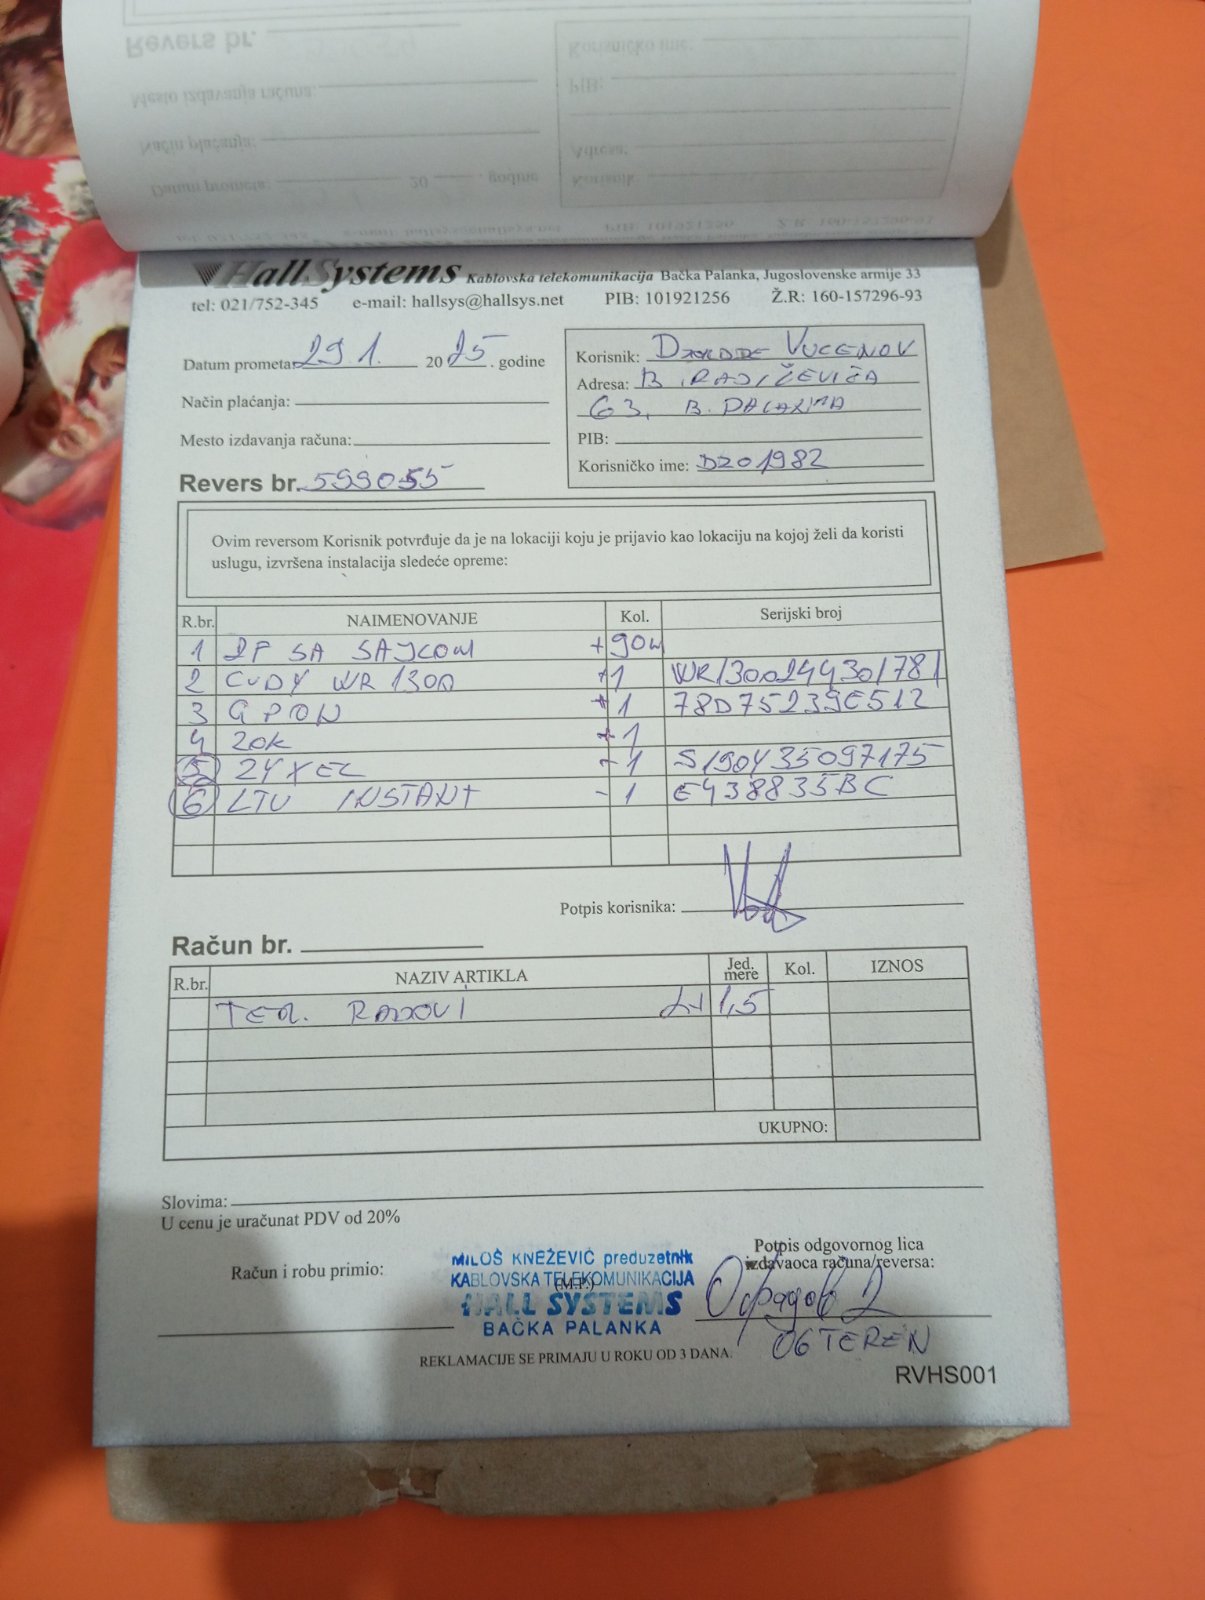 HallSystems Kablovska telekomunikacija Bačka Palanka, Jugoslovenske armije 33
tel: 021/752-345 e-mail: hallsys@hallsys.net PIB: 101921256 Ž.R: 160-157296-93
Datum prometa: 29.1. 2025. godine
Način plaćanja:
Mesto izdavanja računa:
Revers br. 599055
Korisnik: DZORDJE VUCENOV
Adresa: B. RADIČEVIĆA
63, B. PALANKA
PIB:
Korisničko ime: DZO1982
Ovim reversom Korisnik potvrđuje da je na lokaciji koju je prijavio kao lokaciju na kojoj želi da koristi
uslugu, izvršena instalacija sledeće opreme:
R.br. NAIMENOVANJE Kol. Serijski broj
1 2P SA SAJLOM +90m
2 CUDY WR 1300 +1 WR1300244301781
3 GPON +1 78D75239E512
4 ZOK +1
5 ZYXEL -1 S190435097175
6 LTU INSTANT -1 E438835BC
Potpis korisnika:
Račun br.
R.br. NAZIV ARTIKLA Jed. mere Kol. IZNOS
TER. RADOVI 2x 1,5
UKUPNO:
Slovima:
U cenu je uračunat PDV od 20%
Račun i robu primio:
MILOŠ KNEŽEVIĆ preduzetnik
KABLOVSKA TELEKOMUNIKACIJA
(M.P.)
HALL SYSTEMS
BAČKA PALANKA
Potpis odgovornog lica
izdavaoca računa/reversa:
06TEREN
REKLAMACIJE SE PRIMAJU U ROKU OD 3 DANA.
RVHS001